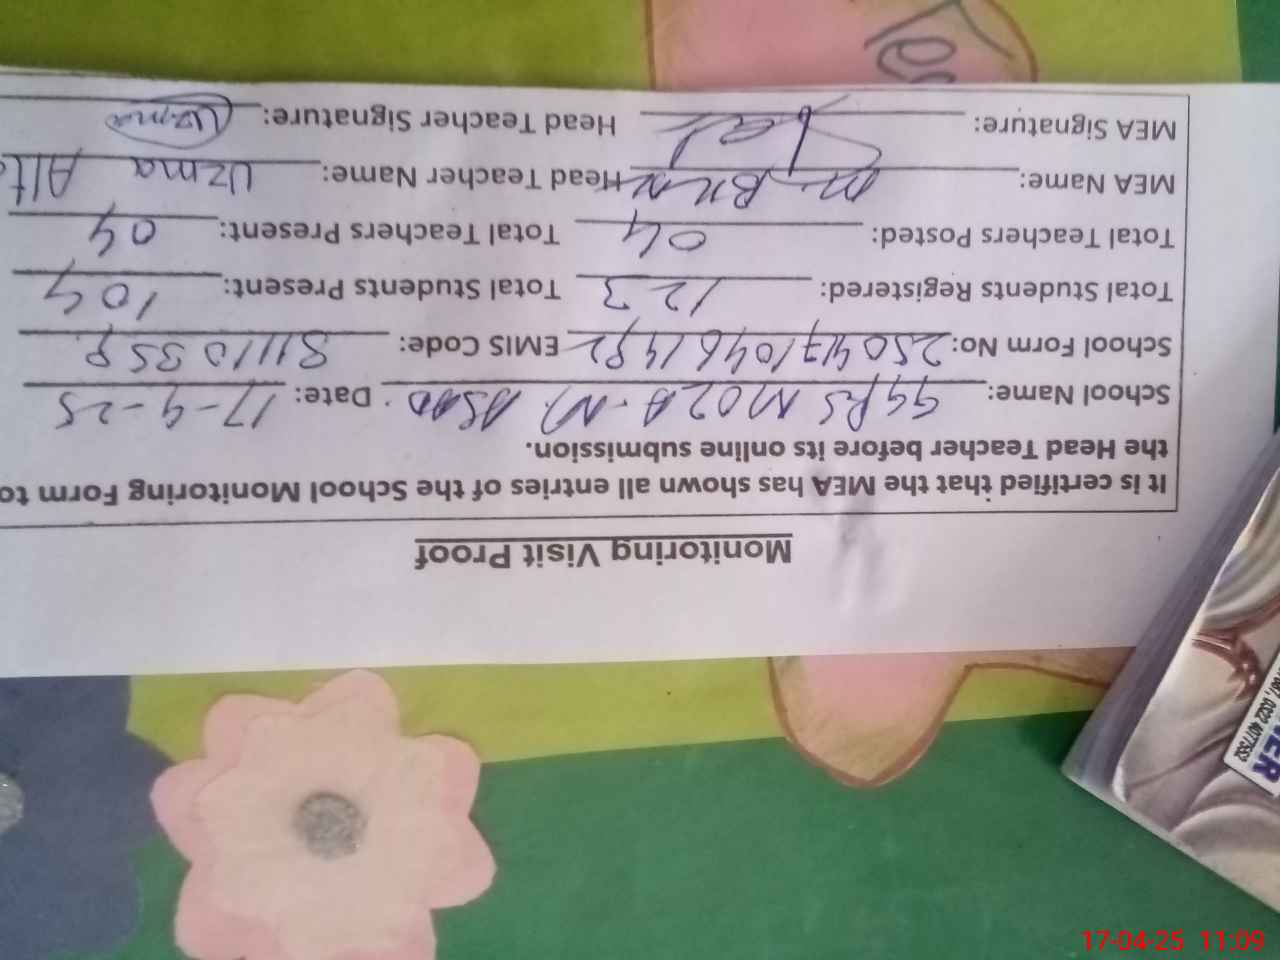 Monitoring Visit Proof
It is certified that the MEA has shown all entries of the School Monitoring Form to
the Head Teacher before its online submission.
School Name: GGPS MOZA. M. ASAD. Date: 17-4-25
School Form No: EMIS Code:
Total Students Registered: 123 Total Students Present: 104
Total Teachers Posted: 04 Total Teachers Present: 04
MEA Name: Head Teacher Name: Uzma
MEA Signature: Head Teacher Signature: Uzma
0322 4077552
17-04-25 11:09